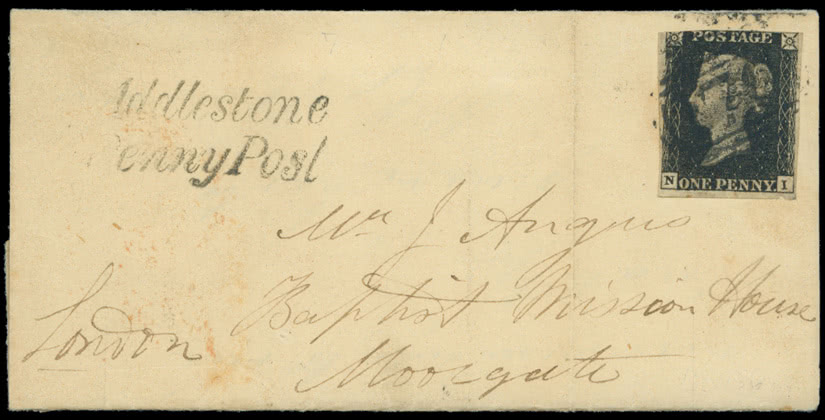 Addlestone
Penny Post
POSTAGE
N ONE PENNY I
Mr J Angus
Baptist Mission House
London
Moorgate